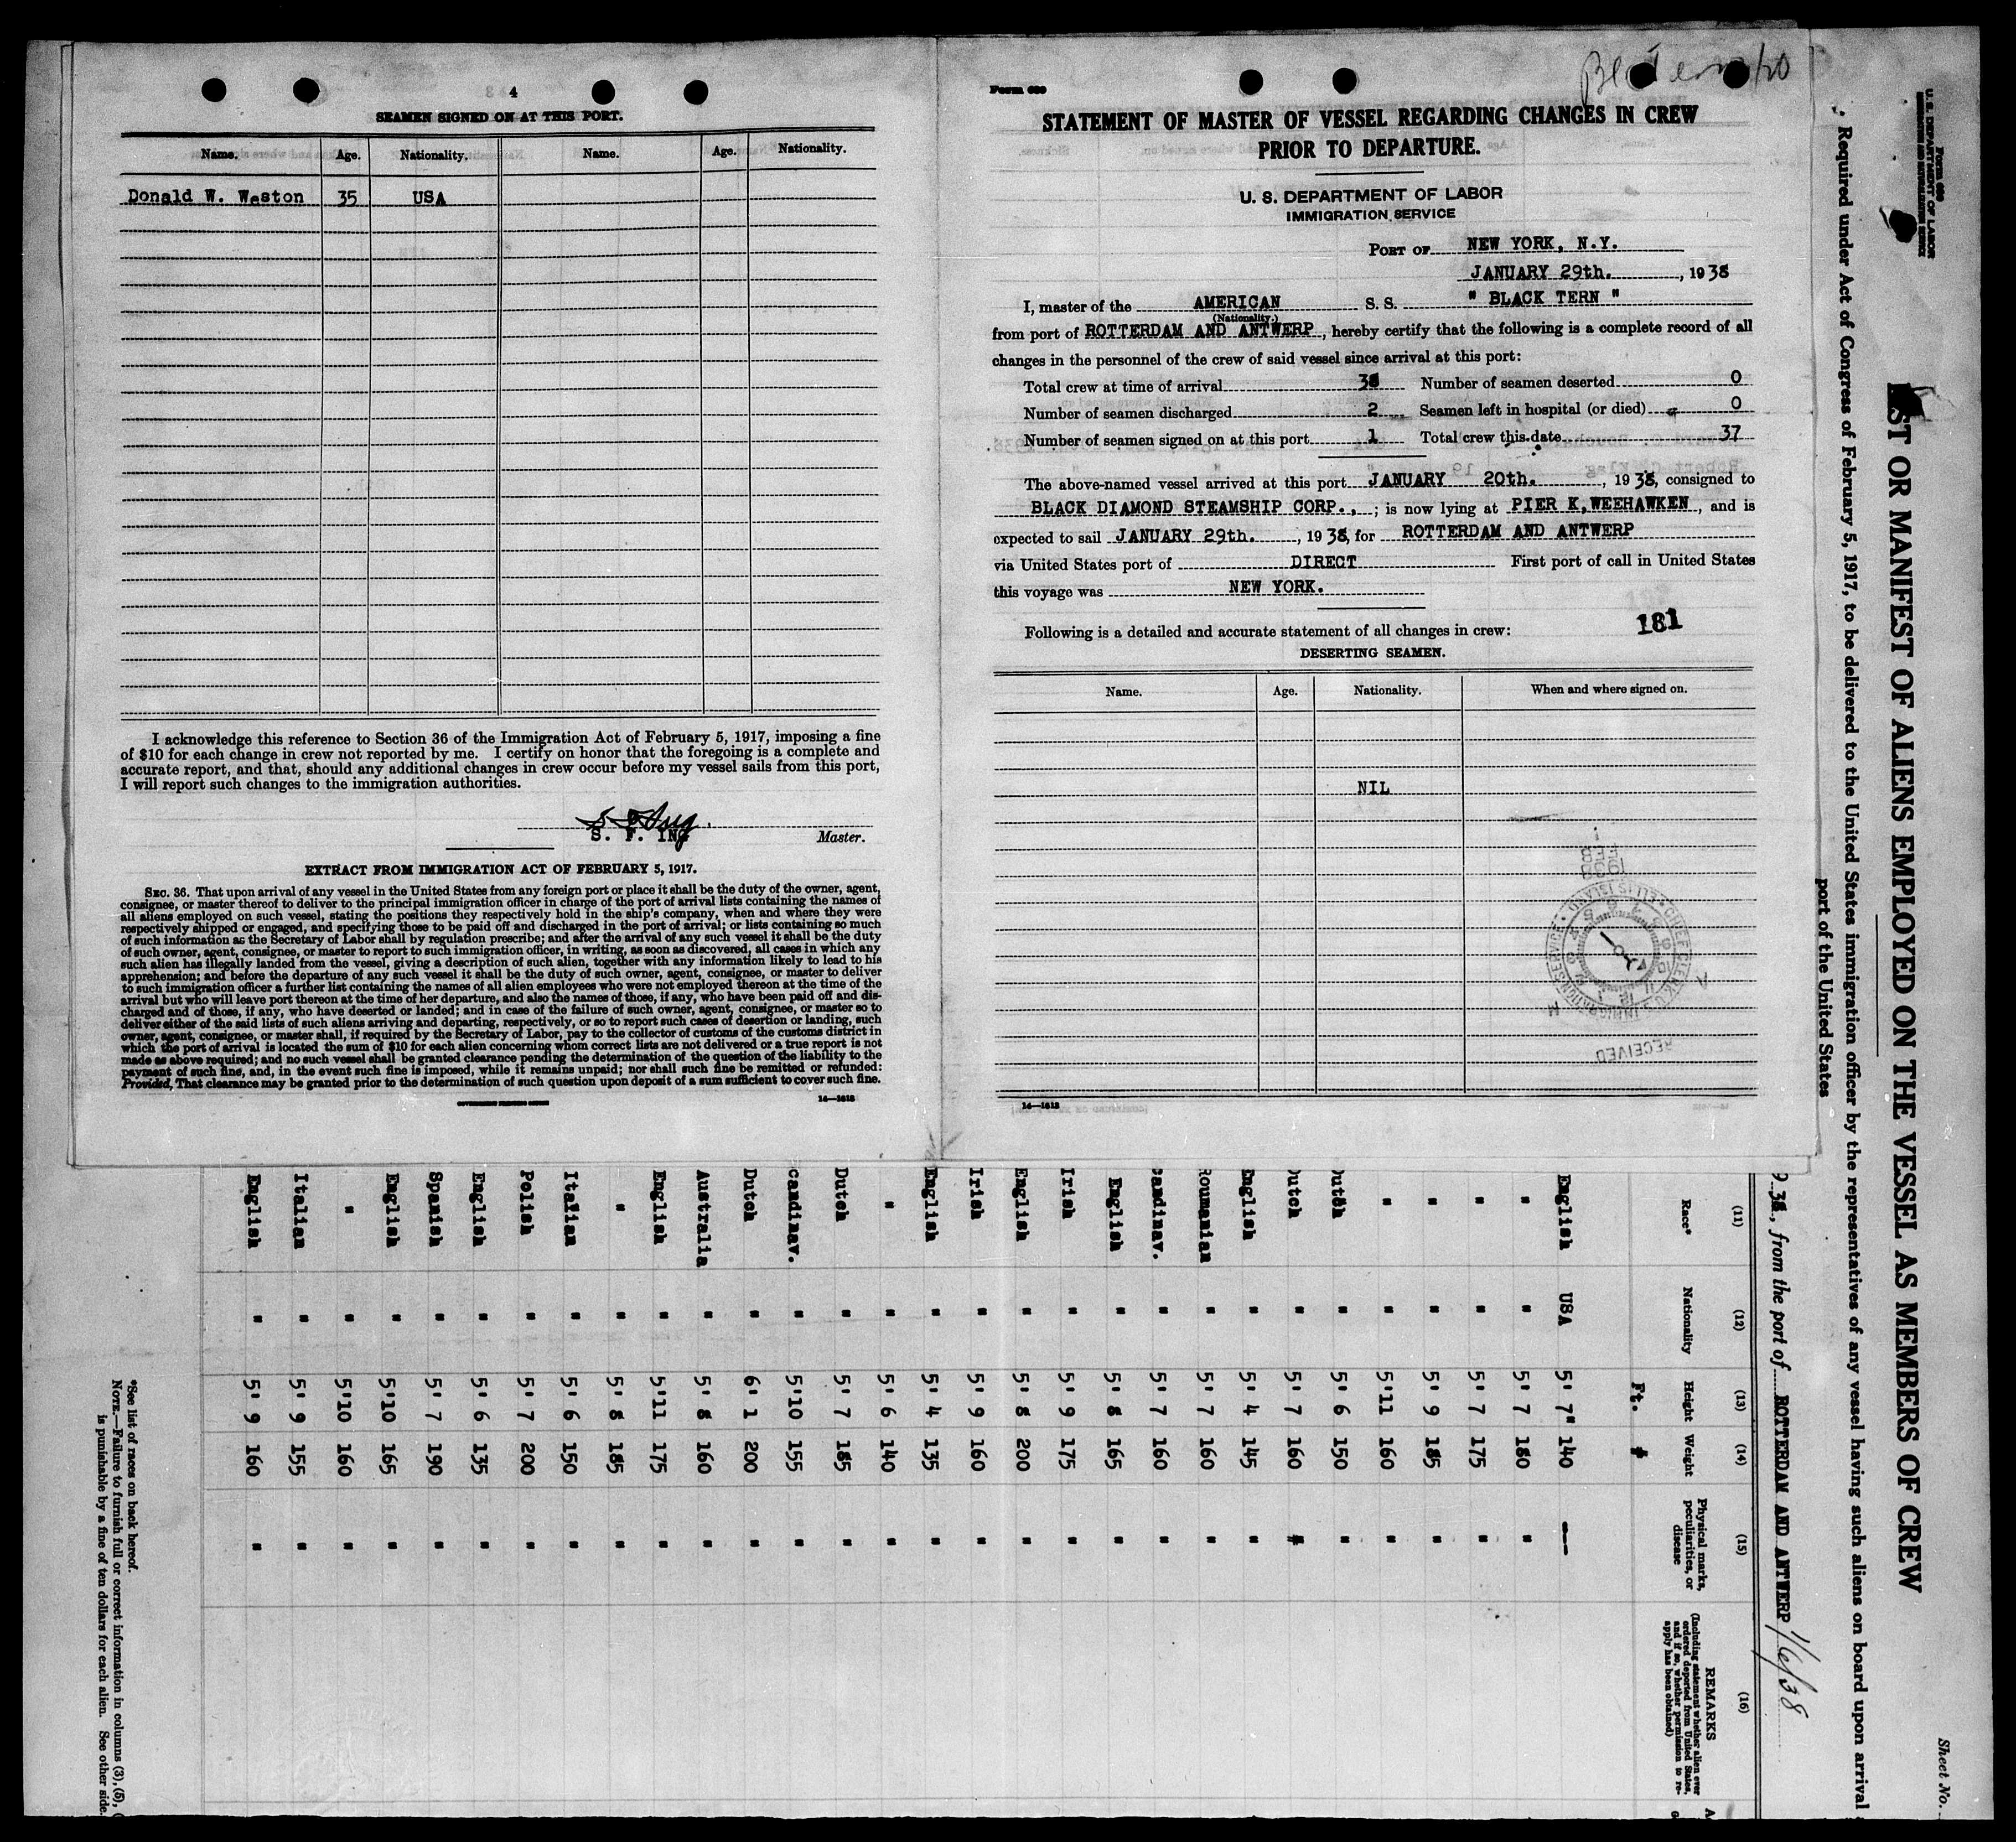 4
SEAMEN SIGNED ON AT THIS PORT.
Name. Age. Nationality. Name. Age. Nationality.
Donald W. Weston 35 USA
I acknowledge this reference to Section 36 of the Immigration Act of February 5, 1917, imposing a fine
of $10 for each change in crew not reported by me. I certify on honor that the foregoing is a complete and
accurate report, and that, should any additional changes in crew occur before my vessel sails from this port,
I will report such changes to the immigration authorities.
S. F. ING Master.
EXTRACT FROM IMMIGRATION ACT OF FEBRUARY 5, 1917.
SEC. 36. That upon arrival of any vessel in the United States from any foreign port or place it shall be the duty of the owner, agent,
consignee, or master thereof to deliver to the principal immigration officer in charge of the port of arrival lists containing the names of
all aliens employed on such vessel, stating the positions they respectively hold in the ship's company, when and where they were
respectively shipped or engaged, and specifying those to be paid off and discharged in the port of arrival; or lists containing so much
of such information as the Secretary of Labor shall by regulation prescribe; and after the arrival of any such vessel it shall be the duty
of such owner, agent, consignee, or master to report to such immigration officer, in writing, as soon as discovered, all cases in which any
such alien has illegally landed from the vessel, giving a description of such alien, together with any information likely to lead to his
apprehension; and before the departure of any such vessel it shall be the duty of such owner, agent, consignee, or master to deliver
to such immigration officer a further list containing the names of all alien employees who were not employed thereon at the time of the
arrival but who will leave port thereon at the time of her departure, and also the names of those, if any, who have been paid off and dis-
charged and of those, if any, who have deserted or landed; and in case of the failure of such owner, agent, consignee, or master so to
deliver either of the said lists of such aliens arriving and departing, respectively, or so to report such cases of desertion or landing, such
owner, agent, consignee, or master shall, if required by the Secretary of Labor, pay to the collector of customs of the customs district in
which the port of arrival is located the sum of $10 for each alien concerning whom correct lists are not delivered or a true report is not
made as above required; and no such vessel shall be granted clearance pending the determination of the question of the liability to the
payment of such fine, and, in the event such fine is imposed, while it remains unpaid; nor shall such fine be remitted or refunded:
Provided, That clearance may be granted prior to the determination of such question upon deposit of a sum sufficient to cover such fine.
GOVERNMENT PRINTING OFFICE 14—1613
Form 689
STATEMENT OF MASTER OF VESSEL REGARDING CHANGES IN CREW
PRIOR TO DEPARTURE.
U. S. DEPARTMENT OF LABOR
IMMIGRATION SERVICE
PORT OF NEW YORK, N.Y.
JANUARY 29th., 1938
I, master of the AMERICAN S. S. " BLACK TERN "
(Nationality.)
from port of ROTTERDAM AND ANTWERP, hereby certify that the following is a complete record of all
changes in the personnel of the crew of said vessel since arrival at this port:
Total crew at time of arrival 38 Number of seamen deserted 0
Number of seamen discharged 2 Seamen left in hospital (or died) 0
Number of seamen signed on at this port 1 Total crew this date 37
The above-named vessel arrived at this port JANUARY 20th., 1938, consigned to
BLACK DIAMOND STEAMSHIP CORP., ; is now lying at PIER K, WEEHAWKEN, and is
expected to sail JANUARY 29th., 1938, for ROTTERDAM AND ANTWERP
via United States port of DIRECT First port of call in United States
this voyage was NEW YORK.
Following is a detailed and accurate statement of all changes in crew: 181
DESERTING SEAMEN.
Name. Age. Nationality. When and where signed on.
NIL
14—1613
Form 689
U. S. DEPARTMENT OF LABOR
ST OR MANIFEST OF ALIENS EMPLOYED ON THE VESSEL AS MEMBERS OF CREW
Sheet No.
Required under Act of Congress of February 5, 1917, to be delivered to the United States immigration officer by the representatives of any vessel having such aliens on board upon arrival
port of the United States
38, from the port of ROTTERDAM AND ANTWERP 1/6/38
(11) (12) (13) (14) (15) (16)
Race* Nationality Height Weight Physical marks, peculiarities, or disease REMARKS
(Including statement whether alien ever ordered deported from United States, and if so, whether permission to re-apply has been obtained)
Ft. #
English USA 5' 7" 140 —
" " 5' 7 180 "
" " 5' 7 175 "
" " 5' 9 185 "
" " 5'11 160 "
Dutch " 5' 6 150 "
Dutch " 5' 7 160 "
English " 5' 4 145 "
Roumanian " 5' 7 160 "
Scandinav. " 5' 7 160 "
English " 5' 8 165 "
Irish " 5' 9 175 "
English " 5' 8 200 "
Irish " 5' 9 160 "
English " 5' 4 135 "
" " 5' 6 140 "
Dutch " 5' 7 185 "
Scandinav. " 5'10 155 "
Dutch " 6' 1 200 "
Australia " 5' 8 160 "
English " 5'11 175 "
" " 5' 8 185 "
Italian " 5' 6 150 "
Polish " 5' 7 200 "
English " 5' 6 135 "
Spanish " 5' 7 190 "
English " 5'10 165 "
" " 5'10 160 "
Italian " 5' 9 155 "
English " 5' 9 160 "
*See list of races on back hereof.
NOTE.—Failure to furnish full or correct information in columns (3), (5), (
is punishable by a fine of ten dollars for each alien. See other side.